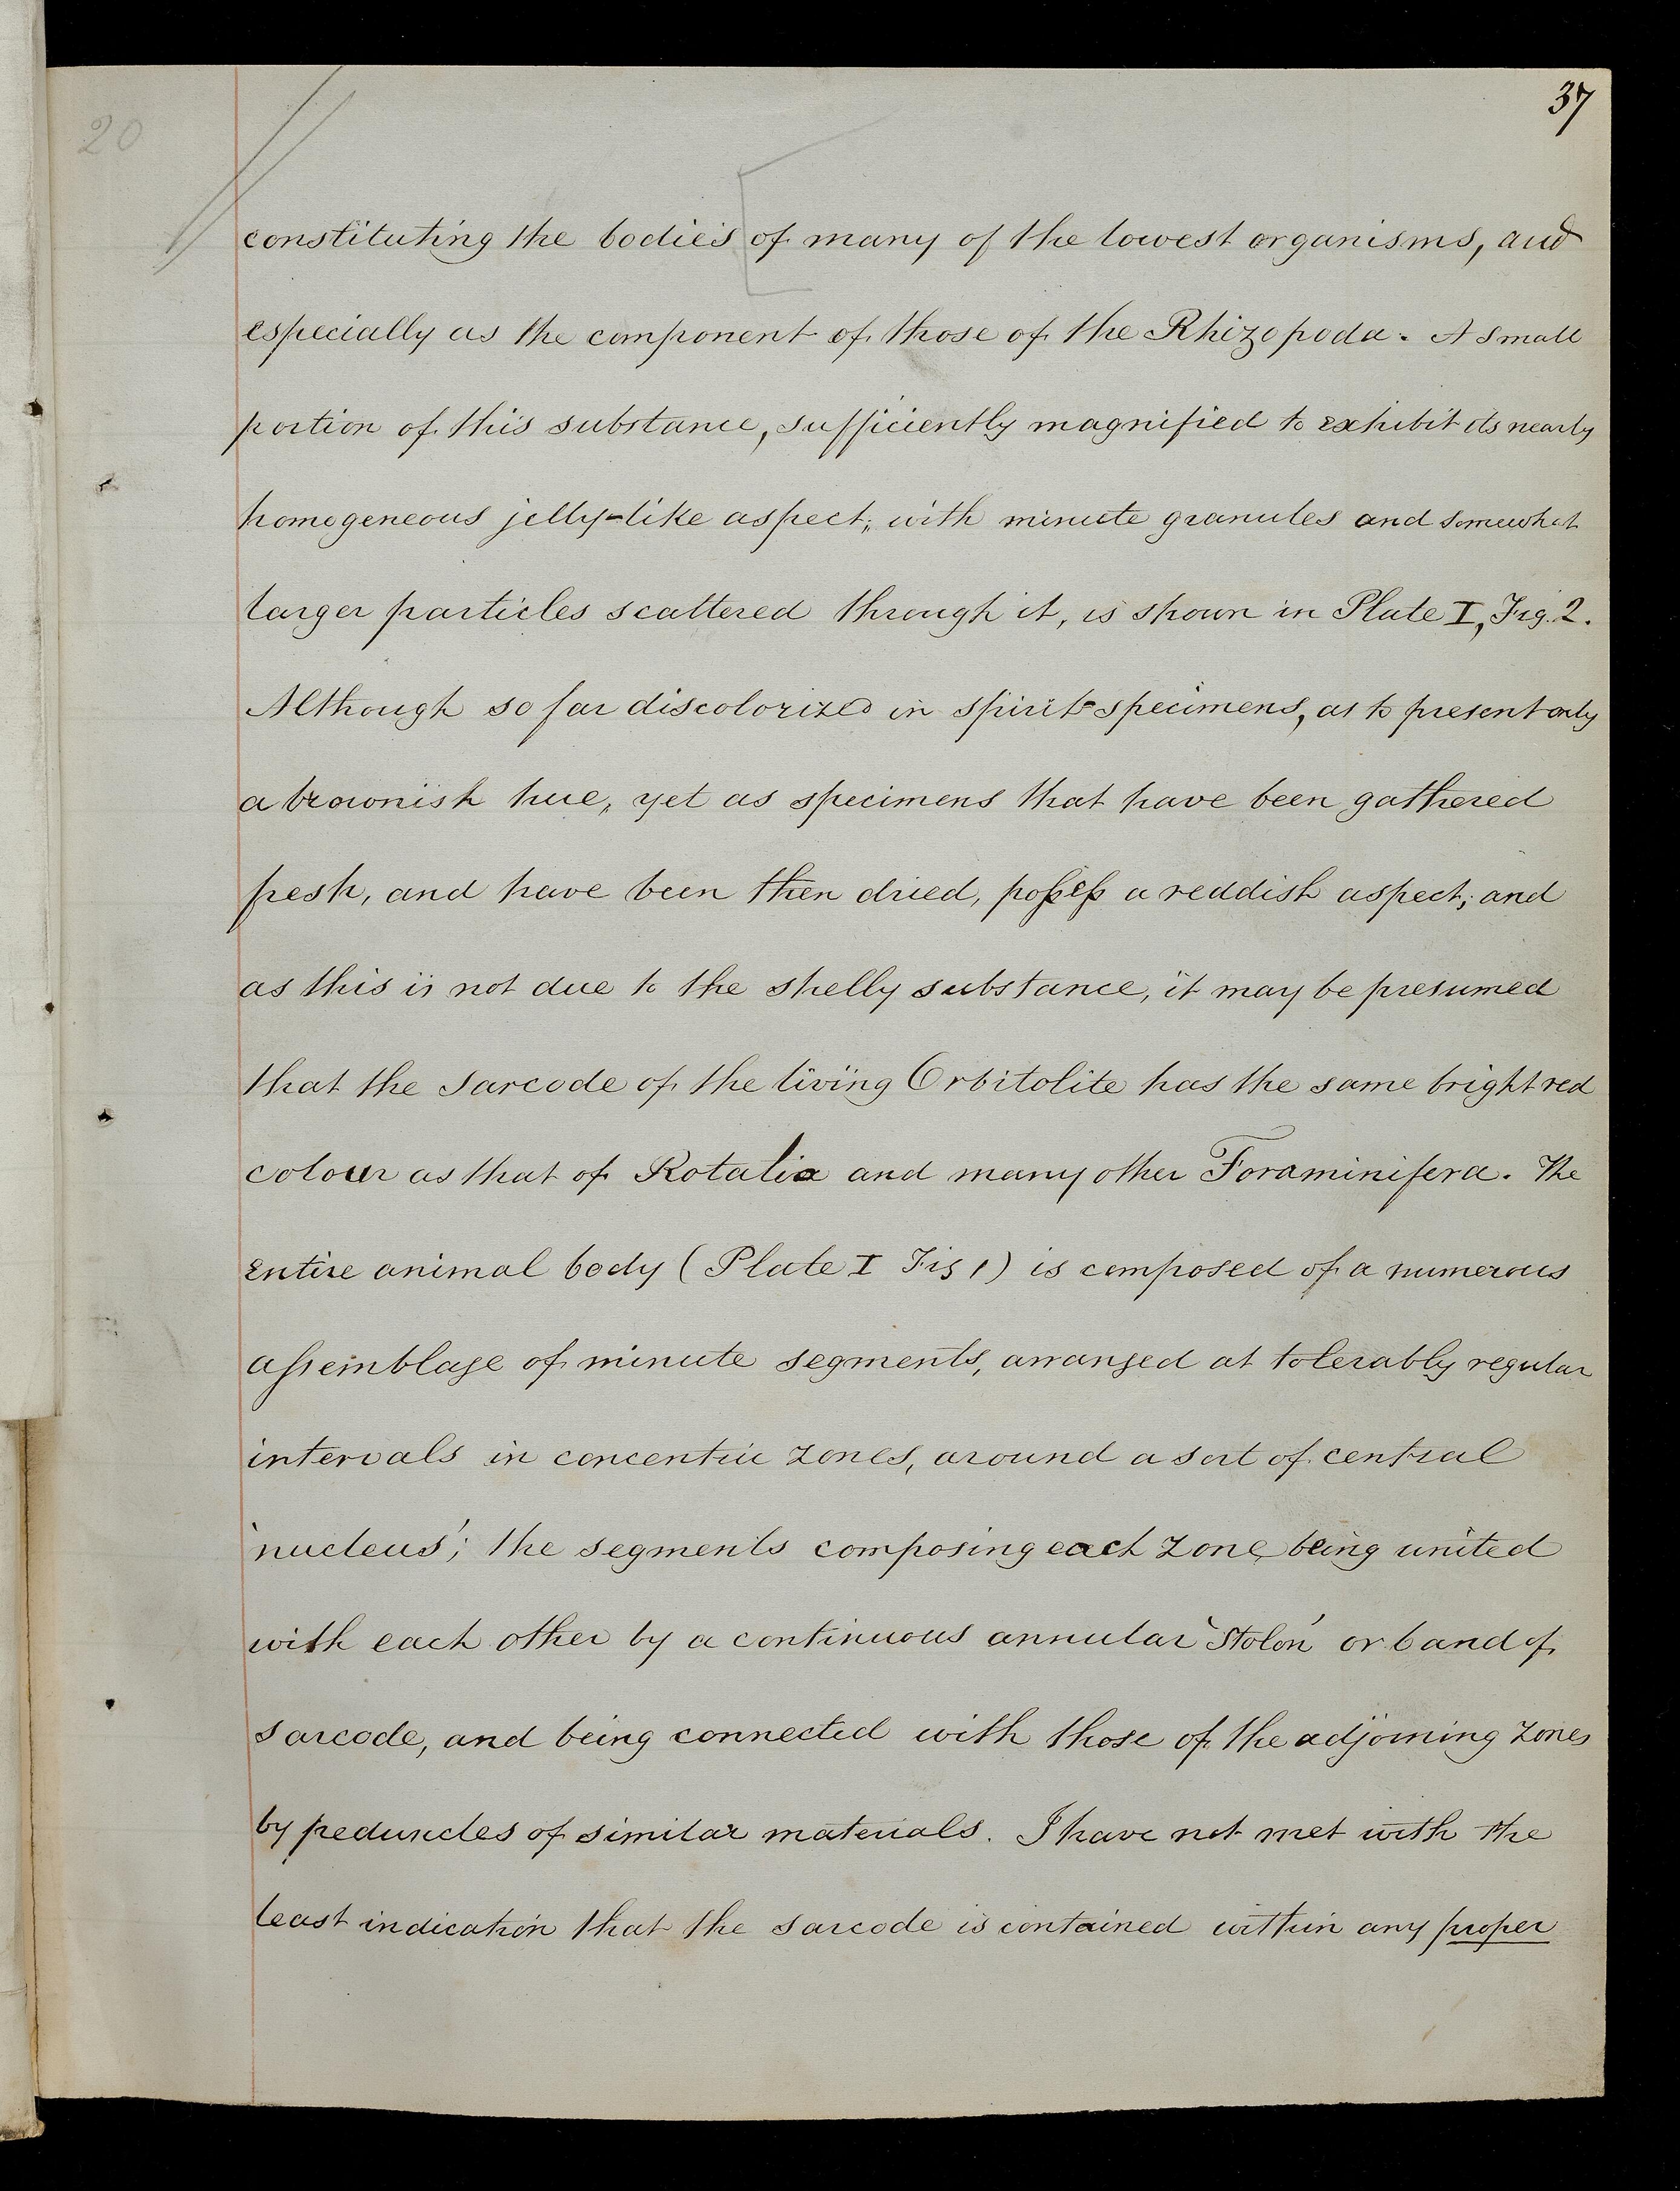 37
20
constituting the bodies of many of the lowest organisms, and
especially as the component of those of the Rhizopoda. A small
portion of this substance, sufficiently magnified to exhibit its nearly
homogeneous jelly-like aspect, with minute granules and somewhat
larger particles scattered through it, is shown in Plate I, Fig. 2.
Although so far discolorized in spirit-specimens, as to present only
a brownish hue, yet as specimens that have been gathered
fresh, and have been then dried, possess a reddish aspect; and
as this is not due to the shelly substance, it may be presumed
that the sarcode of the living Orbitolite has the same bright red
colour as that of Rotalia and many other Foraminifera. The
entire animal body (Plate I Fig 1) is composed of a numerous
assemblage of minute segments, arranged at tolerably regular
intervals in concentric zones, around a sort of central
'nucleus'; the segments composing each zone being united
with each other by a continuous annular 'stolon' or band of
sarcode, and being connected with those of the adjoining zones
by peduncles of similar materials. I have not met with the
least indication that the sarcode is contained within any proper